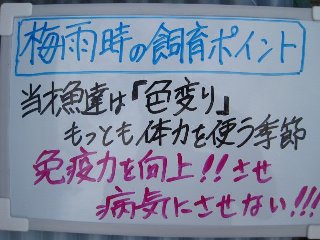 梅雨時の飼育ポイント
当才魚達は「色変り」
もっとも体力を使う季節
免疫力を向上!!させ
病気にさせない!!!